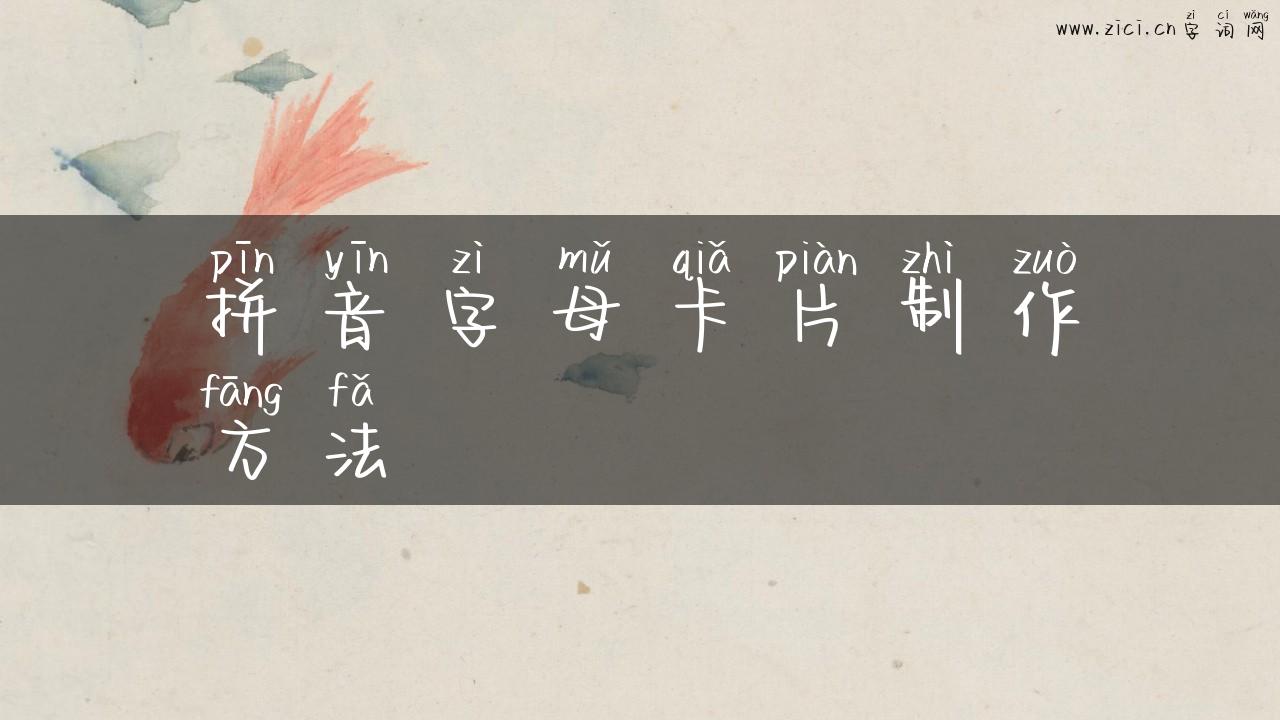 zì cí wǎng
www.zici.cn 字 词 网
pīn yīn zì mǔ qiǎ piàn zhì zuò
拼 音 字 母 卡 片 制 作
fāng fǎ
方 法